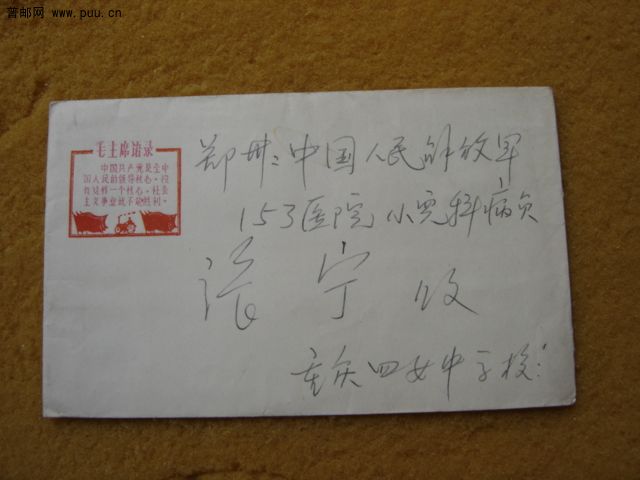 普邮网 www.puu.cn
毛主席语录
中国共产党是全中
国人民的领导核心。没
有这样一个核心，社会
主义事业就不能胜利。
郑州：中国人民解放军
153医院 小儿科病员
张宁收
重庆四女中学校：